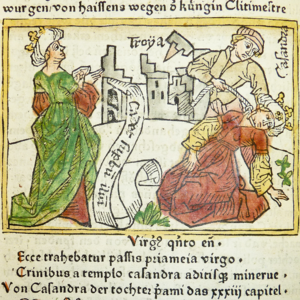 wurgen von haissens wegen d' küngin Clitimestre
Troya
Casandra
Virgꝫ qn̄to en̄ ·
Ecce trahebatur passis priameia virgo ·
Crinibus a templo casandra aditisqꝫ minerue ·
Von Casandra der tochter p̓ami das xxxiii capitel ·